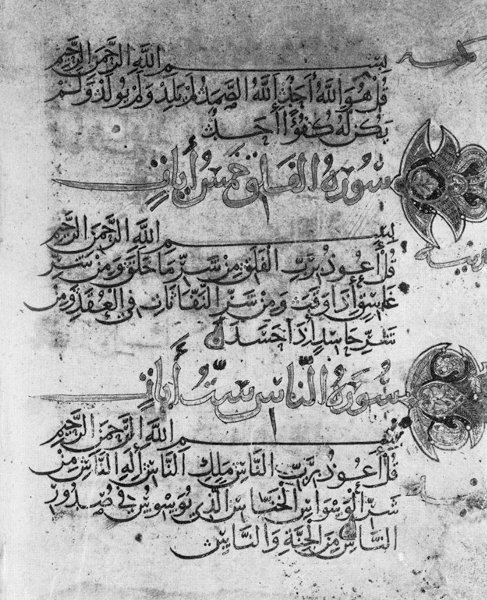 مكية
بِسْمِ اللَّهِ الرَّحْمَنِ الرَّحِيمِ
قُلْ هُوَ اللَّهُ أَحَدٌ اللَّهُ الصَّمَدُ لَمْ يَلِدْ وَلَمْ يُولَدْ وَلَمْ
يَكُنْ لَهُ كُفُوًا أَحَدٌ
سورة الفلق خمس آيات
بِسْمِ اللَّهِ الرَّحْمَنِ الرَّحِيمِ
مدنية
قُلْ أَعُوذُ بِرَبِّ الْفَلَقِ مِنْ شَرِّ مَا خَلَقَ وَمِنْ شَرِّ
غَاسِقٍ إِذَا وَقَبَ وَمِنْ شَرِّ النَّفَّاثَاتِ فِي الْعُقَدِ وَمِنْ
شَرِّ حَاسِدٍ إِذَا حَسَدَ
سورة الناس ست آيات
بِسْمِ اللَّهِ الرَّحْمَنِ الرَّحِيمِ
قُلْ أَعُوذُ بِرَبِّ النَّاسِ مَلِكِ النَّاسِ إِلَهِ النَّاسِ مِنْ
شَرِّ الْوَسْوَاسِ الْخَنَّاسِ الَّذِي يُوَسْوِسُ فِي صُدُورِ
النَّاسِ مِنَ الْجِنَّةِ وَالنَّاسِ